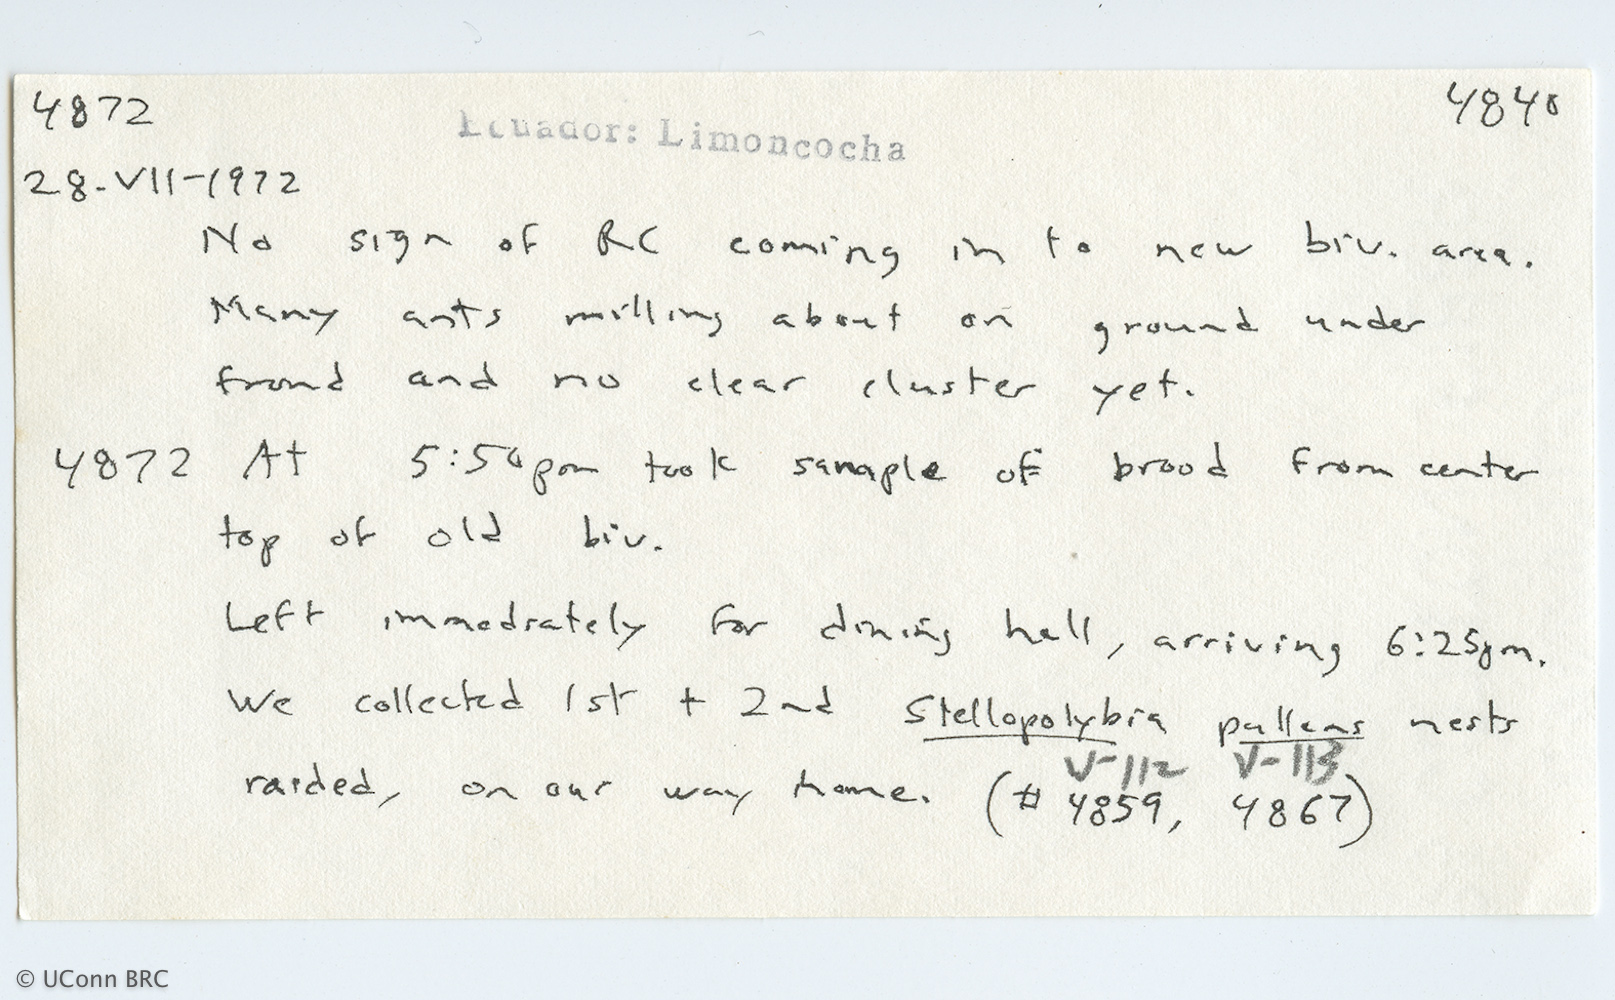 4872 Ecuador: Limoncocha 4840
28-VII-1972
No sign of RC coming in to new biv. area.
Many ants milling about on ground under
frond and no clear cluster yet.
4872 At 5:50pm took sample of brood from center
top of old biv.
Left immediately for dining hall, arriving 6:25pm.
We collected 1st + 2nd Stellopolybia pallens nests
V-112 V-113
raided, on our way home. (# 4859, 4867)
© UConn BRC